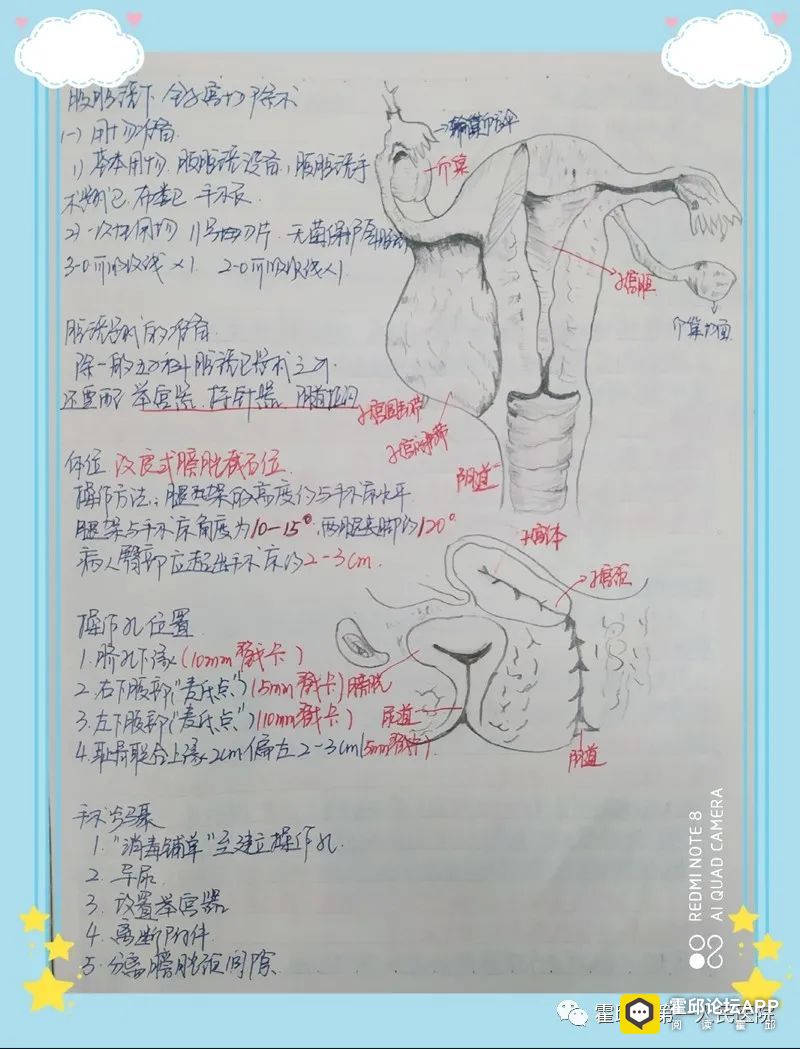 腹腔镜下全子宫切除术
(一) 用物准备
1) 基本用物 腹腔镜设备、腹腔镜手
术器械包 布类包 手术衣
2) 一次性用物 11号抽刀片 无菌保护套
3-0可吸收线×1 2-0可吸收线×1
腔镜器械的准备
除一般的妇科腹腔镜包器械之外
还要配 举宫器 持针器 阴道拉钩
体位 改良式膀胱截石位
操作方法:腿架的高度约与手术床水平
腿架与手术床角度为10-15° 两腿夹脚约120°
病人臀部应超出手术床约2-3cm
操作孔位置
1.脐孔下缘(10mm戳卡)
2.右下腹部"麦氏点"(5mm戳卡)
3.左下腹部"麦氏点"(10mm戳卡)
4.耻骨联合上缘2cm偏左2-3cm(5mm戳卡)
手术步骤
1. "消毒铺单"至建立操作孔
2. 导尿
3. 放置举宫器
4. 离断附件
5. 分离膀胱颈间隙
输卵管伞
卵巢
子宫腔
卵巢切面
子宫圆韧带
阴道
子宫体
子宫颈
膀胱
尿道
阴道
REDMI NOTE 8
AI QUAD CAMERA
霍邱
第一人民医院
霍邱论坛APP
阅读霍邱